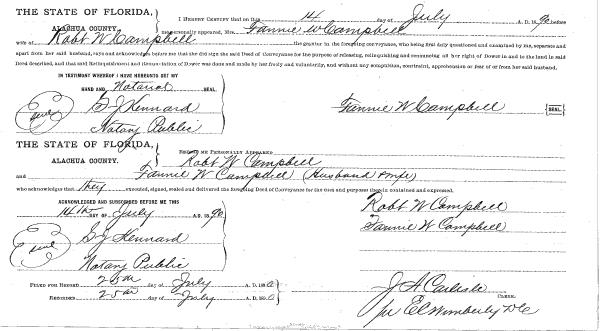 THE STATE OF FLORIDA,
ALACHUA COUNTY.
I HEREBY CERTIFY that on this 14 day of July A. D. 1890 before
me personally appeared, Mrs. Fannie W Campbell
wife of Robt W Campbell the grantor in the foregoing conveyance, who being first duly questioned and examined by me, separate and
apart from her said husband, says and acknowledges before me that she did sign the said Deed of Conveyance for the purpose of releasing, relinquishing and renouncing all her right of Dower in and to the land in said
Deed described, and that said Relinquishment and Renunciation of Dower was done and made by her freely and voluntarily, and without any compulsion, constraint, apprehension or fear of or from her said husband.
IN TESTIMONY WHEREOF I HAVE HEREUNTO SET MY
HAND AND Notarial SEAL
Seal
S J Kennard
Notary Public
Fannie W Campbell SEAL
THE STATE OF FLORIDA,
ALACHUA COUNTY.
BEFORE ME PERSONALLY APPEARED
Robt W Campbell
and Fannie W Campbell (Husband & wife)
who acknowledges that they executed, signed, sealed and delivered the foregoing Deed of Conveyance for the uses and purposes therein contained and expressed.
ACKNOWLEDGED AND SUBSCRIBED BEFORE ME THIS
14th DAY OF July A.D. 1890
Seal
S J Kennard
Notary Public
Robt W Campbell
Fannie W Campbell
FILED FOR RECORD 25th day of July A. D. 1890
RECORDED 25th day of July A. D. 1890
J A Carlisle
CLERK.
pr E C Wimberly D C